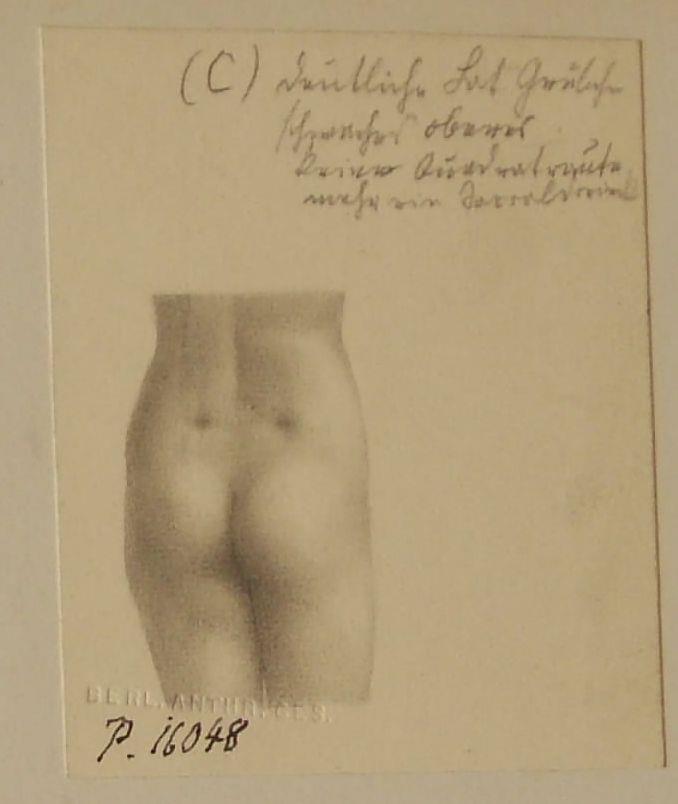 (C) deutliche Lat Grübchen
schwaches oberes
keine Quadratraute
mehr ein Sacraldreieck
BERL. ANTHR. GES.
P. 16048